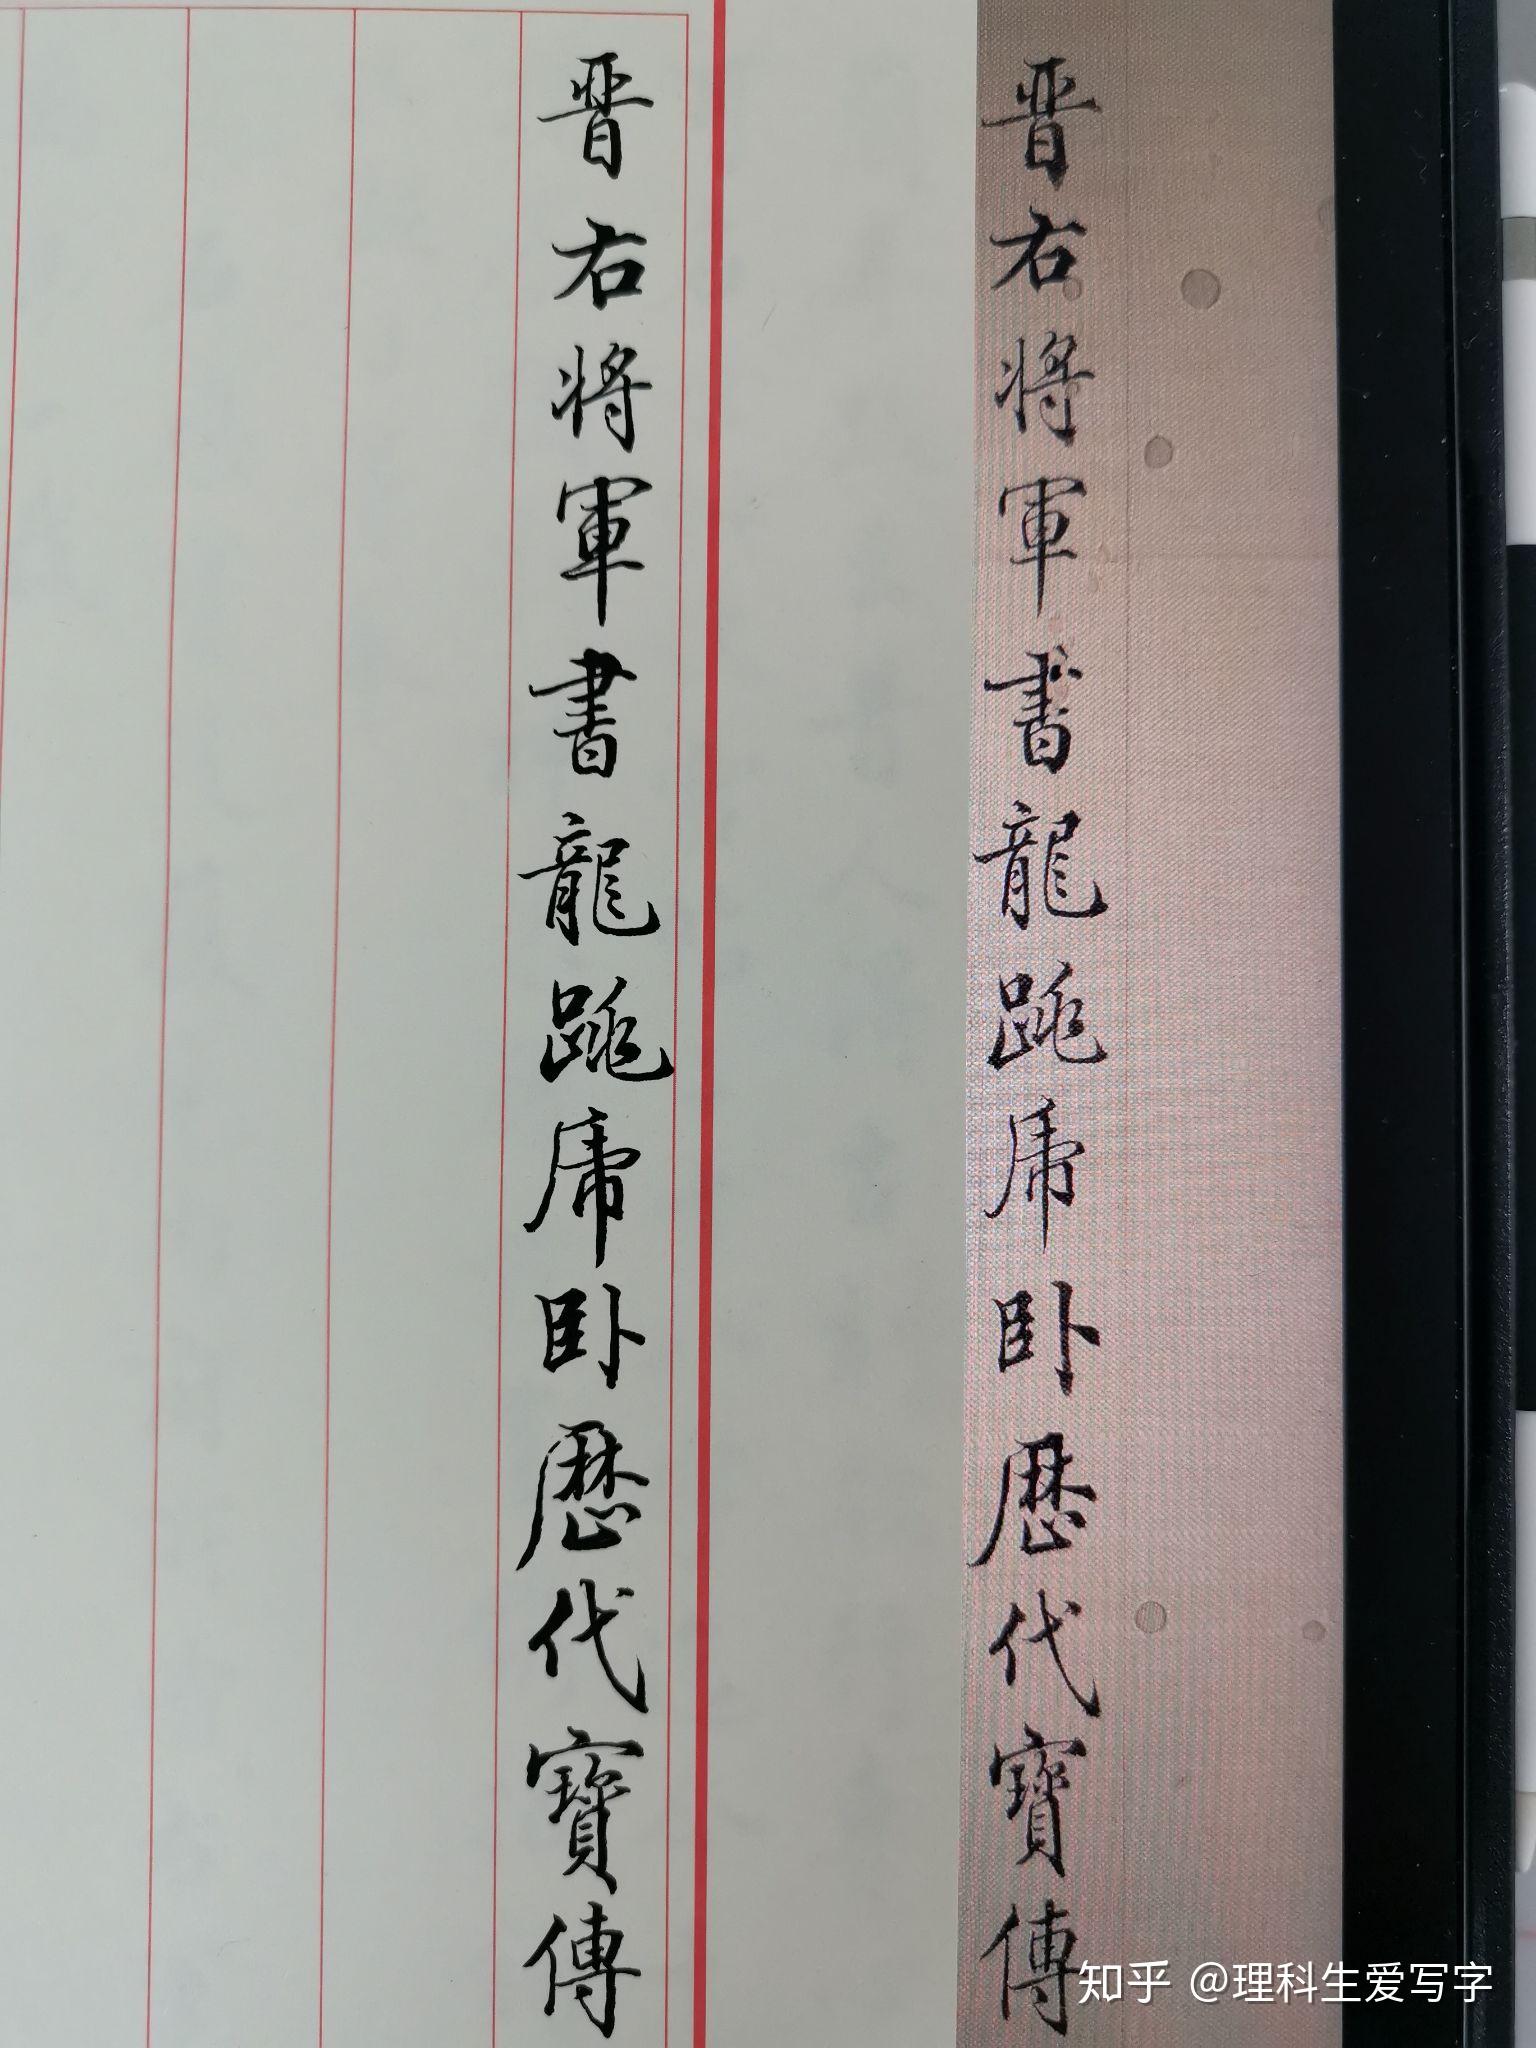 晋右将軍書龍跳虎卧歴代寶傳
晋右将軍書龍跳虎卧歴代寶傳
知乎 @理科生爱写字